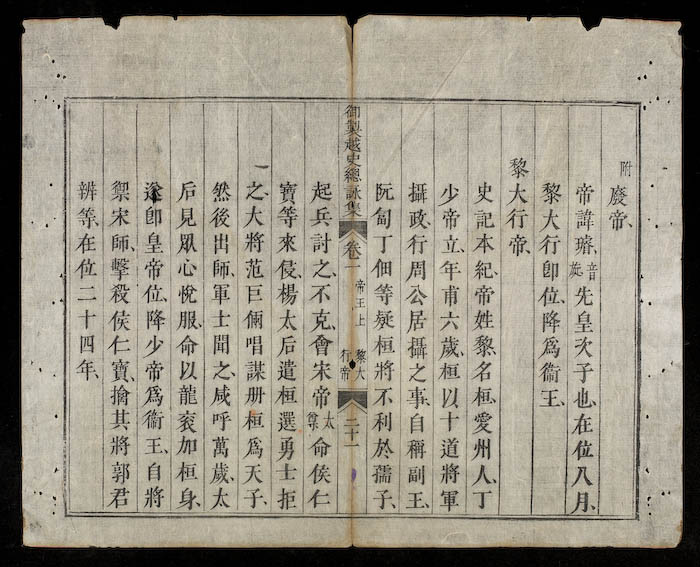 附 廢帝、
帝諱璿、音旋先皇次子也、在位八月、
黎大行即位、降爲衞王、
黎大行帝、
史記本紀、帝姓黎、名桓、愛州人、丁
少帝立、年甫六歲、桓以十道將軍
攝政、行周公居攝之事、自稱副王、
阮匐丁佃等疑桓將不利於孺子、
御製越史總詠集 卷一 帝王上 黎大行帝 二十一
起兵討之、不克、會宋帝太宗命侯仁
寶等來侵、楊太后遣桓選勇士拒
之、大將范巨倆唱謀册桓爲天子、
然後出師、軍士聞之、咸呼萬歲、太
后見眾心悅服、命以龍袞加桓身、
遂即皇帝位、降少帝爲衞王、自將
禦宋師、擊殺侯仁寶、擒其將郭君
辨等、在位二十四年、